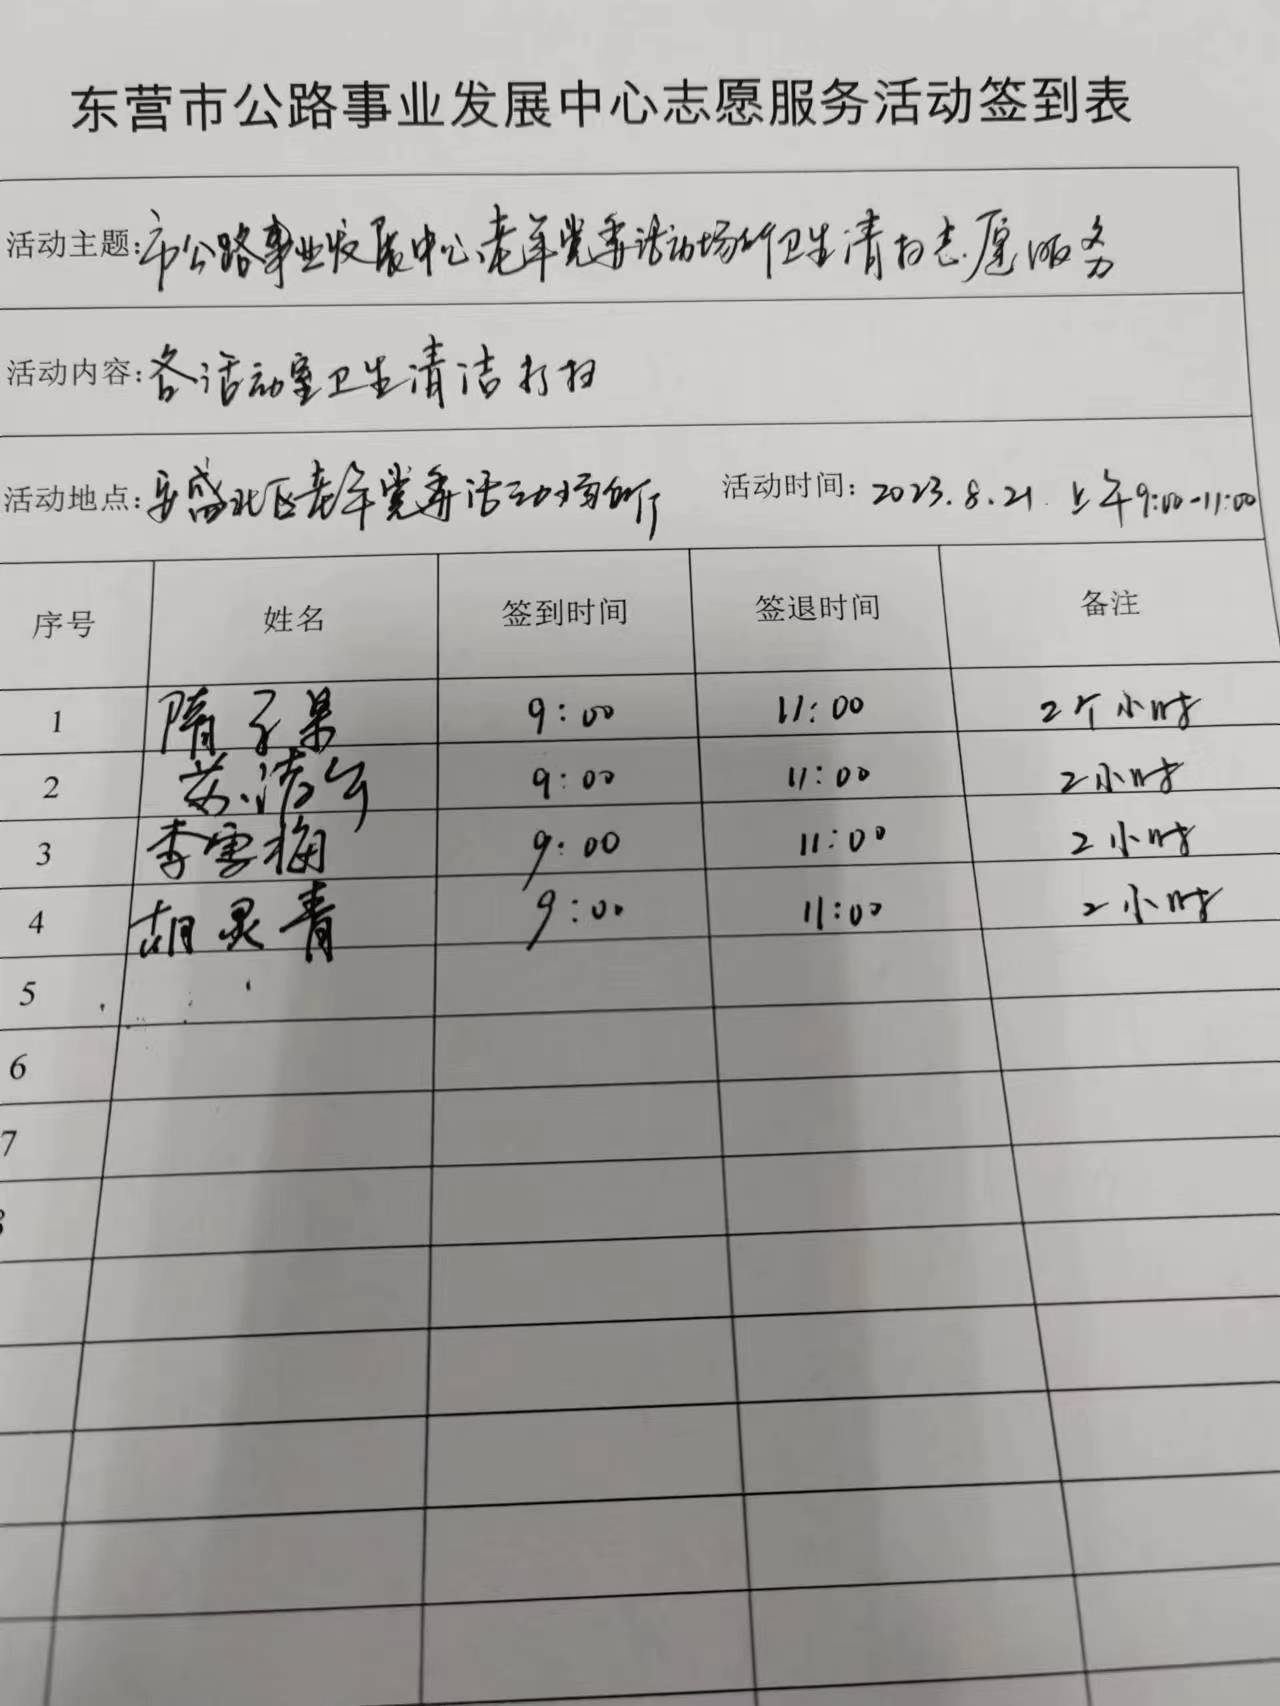 东营市公路事业发展中心志愿服务活动签到表
活动主题:市公路事业发展中心老年党委活动场所卫生清扫志愿服务
活动内容:各活动室卫生清洁打扫
活动地点:安盛北区老年党委活动场所 活动时间:2023.8.21 上午9:00-11:00
序号 姓名 签到时间 签退时间 备注
1 隋子果 9:00 11:00 2个小时
2 苏洁 9:00 11:00 2小时
3 李雪梅 9:00 11:00 2小时
4 胡灵青 9:00 11:00 2小时
5
6
7
8